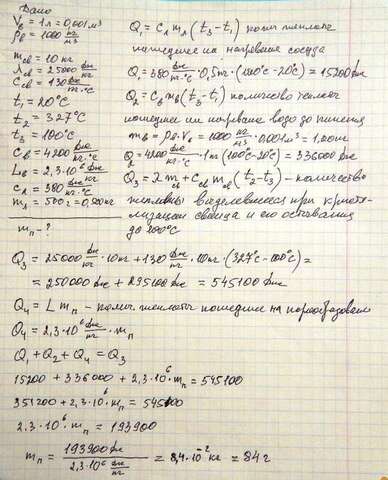 Дано
Vв = 1 л = 0,001 м³
ρв = 1000 кг/м³
mсв = 10 кг
λсв = 25000 дж/кг
Cсв = 130 дж/кг·°C
t₁ = 20°C
t₂ = 327°C
t₃ = 100°C
Cв = 4200 дж/кг·°C
Lв = 2,3·10⁶ дж/кг
Cл = 380 дж/кг·°C
mл = 500 г = 0,500 кг
mп - ?
Q₁ = Cл mл (t₃ - t₁) колич теплоты
пошедшее на нагревание сосуда
Q₁ = 380 дж/кг·°C · 0,5 кг · (100°C - 20°C) = 15200 дж
Q₂ = Cв mв (t₃ - t₁) количество теплоты
пошедшее на нагревание воды до кипения
mв = ρв · Vв = 1000 кг/м³ · 0,001 м³ = 1,00 кг
Q₂ = 4200 дж/кг·°C · 1 кг (100°C - 20°C) = 336000 дж
Q₃ = λ mсв + Cсв mсв (t₂ - t₃) - количество
теплоты выделившееся при кристал-
лизации свинца и его остывания
до 100°C
Q₃ = 25000 дж/кг · 10 кг + 130 дж/кг · 10 кг · (327°C - 100°C) =
= 250000 дж + 295100 дж = 545100 дж
Q₄ = L mп - колич. теплоты пошедшее на парообразование
Q₄ = 2,3·10⁶ дж/кг · mп
Q₁ + Q₂ + Q₄ = Q₃
15200 + 336000 + 2,3·10⁶ · mп = 545100
351200 + 2,3·10⁶ · mп = 545100
2,3·10⁶ · mп = 193900
mп = 193900 дж / 2,3·10⁶ дж/кг = 8,4·10⁻² кг = 84 г